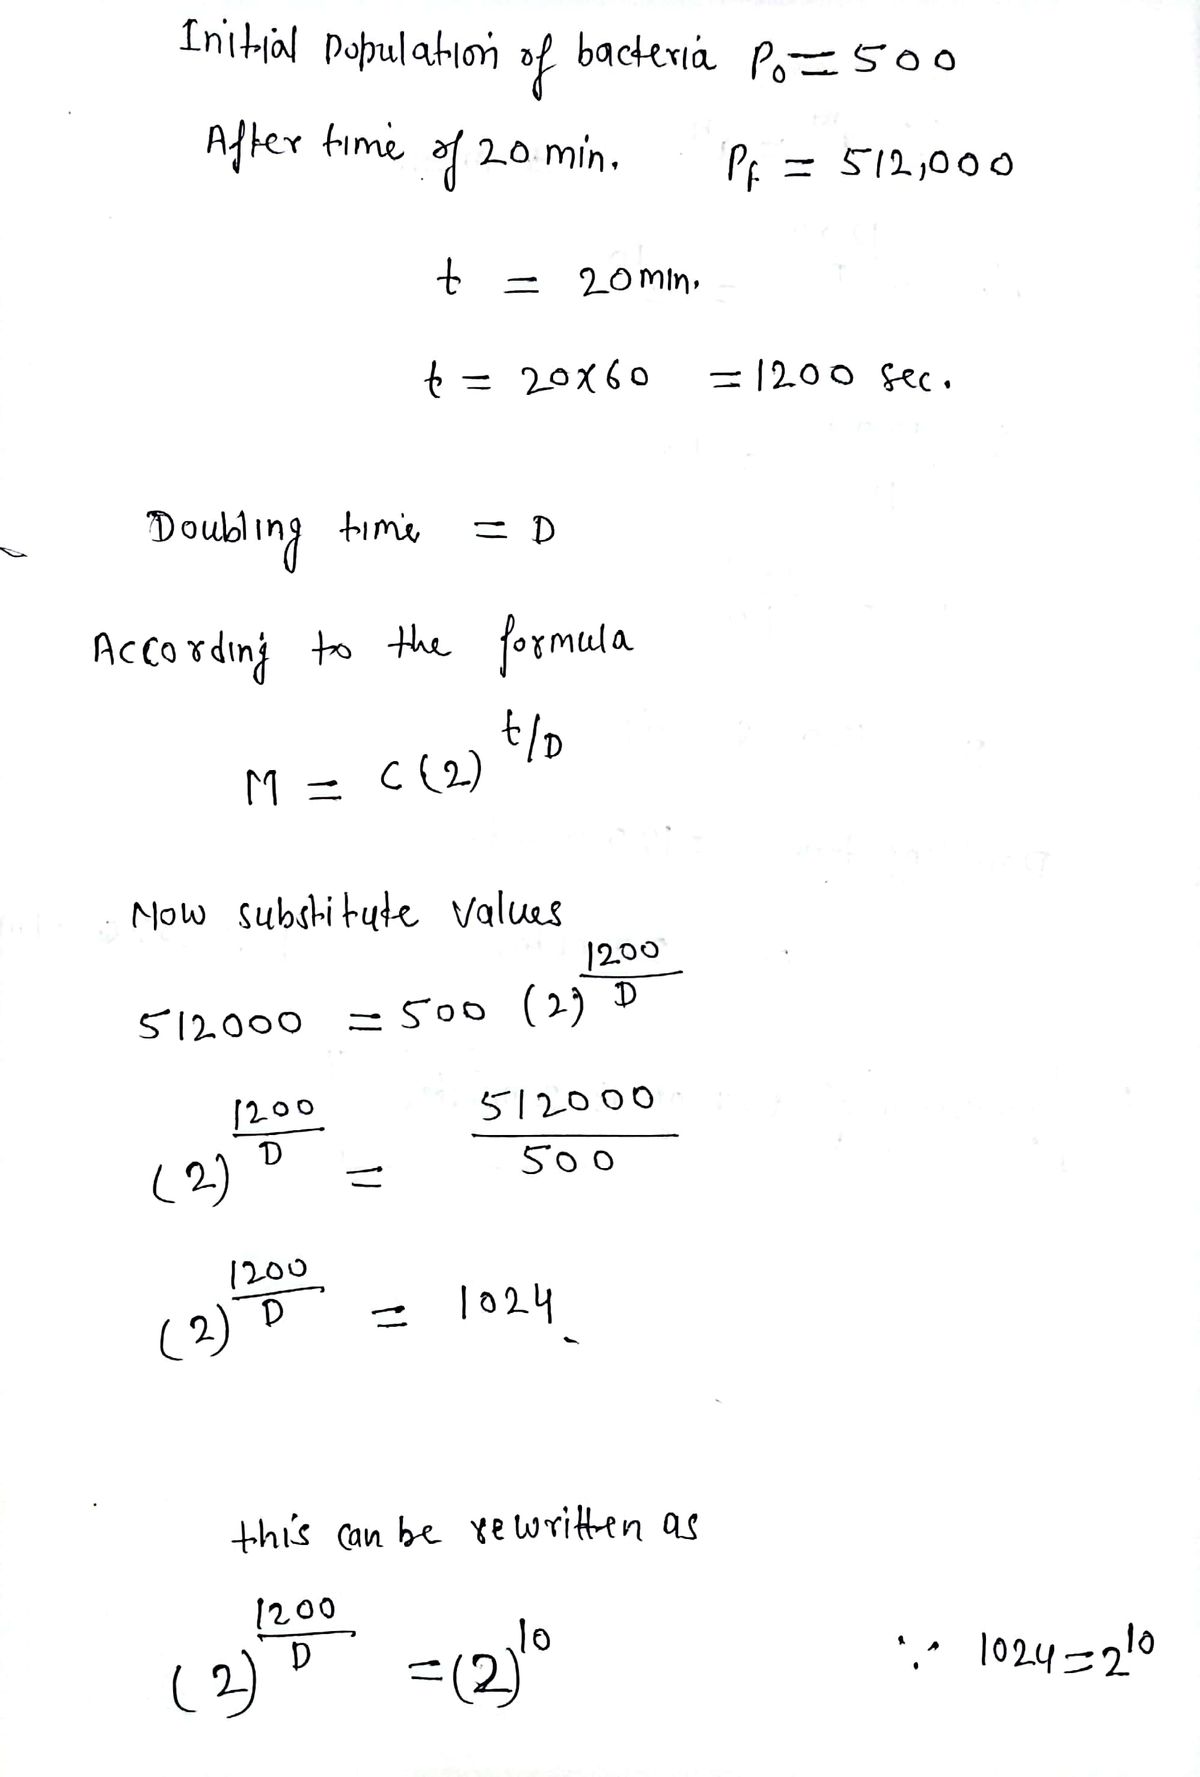 Initial population of bacteria P₀ = 500
After time of 20 min. Pf = 512,000
t = 20 min.
t = 20x60 = 1200 sec.
Doubling time = D
According to the formula
M = C(2)^t/D
Now substitute values
512000 = 500 (2)^1200/D
(2)^1200/D = 512000/500
(2)^1200/D = 1024
this can be rewritten as
(2)^1200/D = (2)^10 ∵ 1024 = 2^10